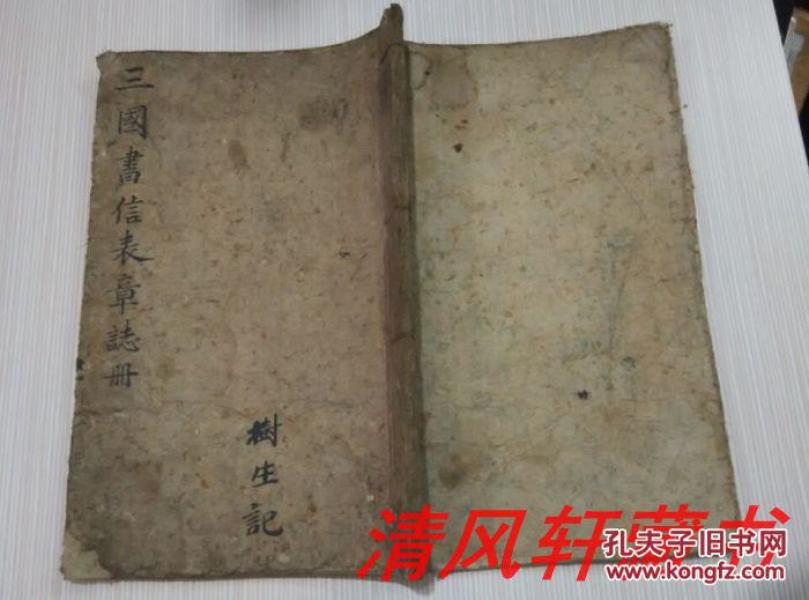 三國書信表章誌册
樹生記
清风轩藏书
孔夫子旧书网
www.kongfz.com